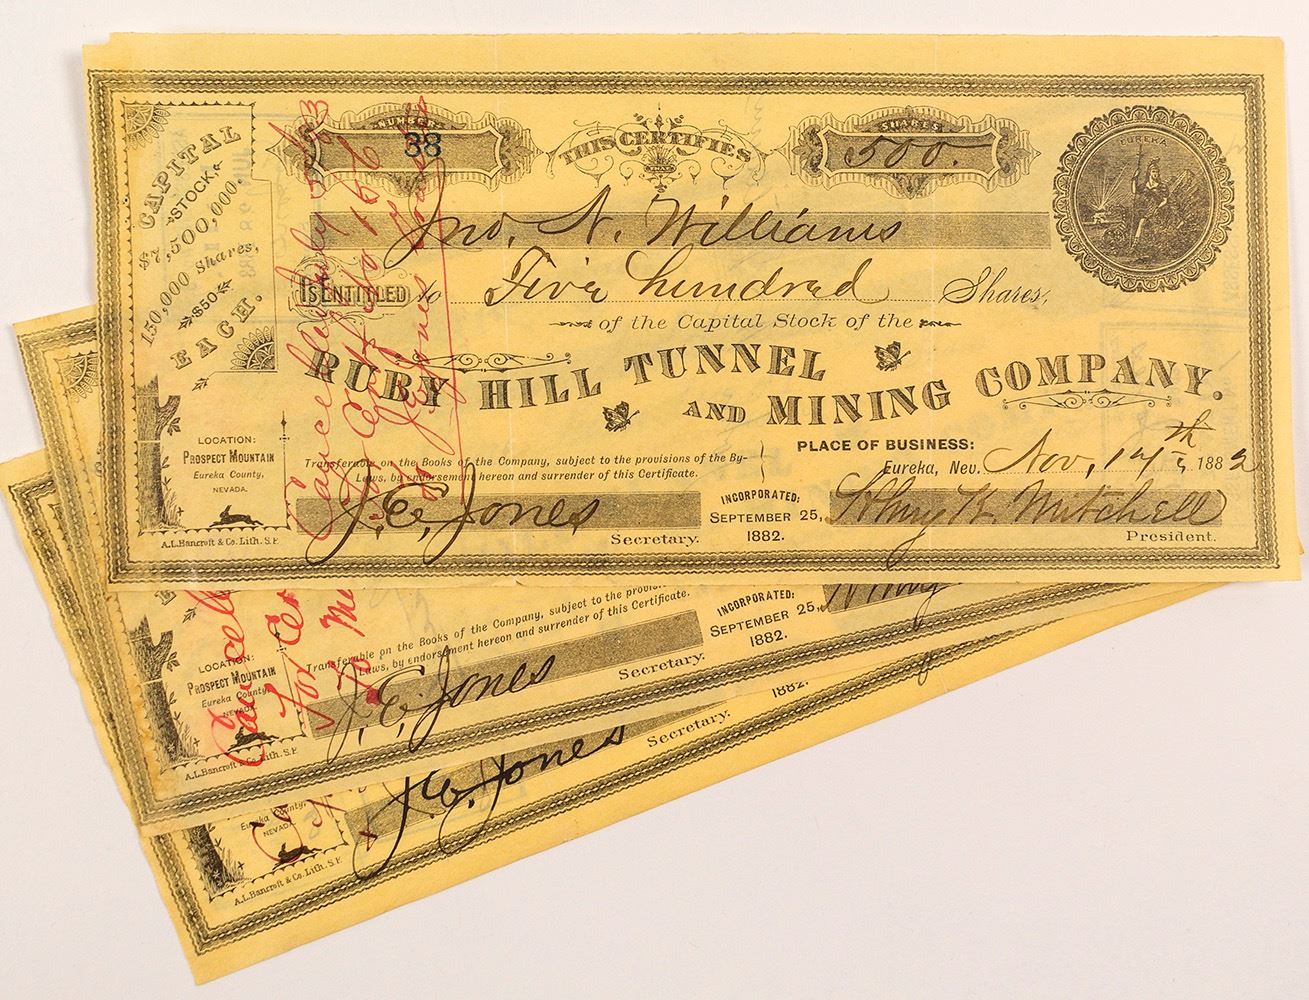 NUMBER
38
THIS CERTIFIES
THAT
SHARES
500.
EUREKA
CAPITAL
STOCK
$7,500,000.
150,000 Shares,
$50
EACH.
Jno. N. Williams
IS ENTITLED to Five hundred Shares,
of the Capital Stock of the
RUBY HILL TUNNEL
AND MINING COMPANY.
LOCATION:
PROSPECT MOUNTAIN
Eureka County,
NEVADA.
A.L.Bancroft & Co. Lith. S.F.
Transferable on the Books of the Company, subject to the provisions of the By-
Laws, by endorsement hereon and surrender of this Certificate.
PLACE OF BUSINESS:
Eureka, Nev. Nov, 14th 1882
J. E. Jones
Secretary.
INCORPORATED:
SEPTEMBER 25,
1882.
Mitchell
President.
Cancelled July
J E Jones
Cancel
For Cer
To
LOCATION:
PROSPECT MOUNTAIN
Eureka County,
NEVADA.
A.L.Bancroft & Co. Lith. S.F.
Transferable on the Books of the Company, subject to the provis
Laws, by endorsement hereon and surrender of this Certificate.
J. E. Jones
Secretary.
INCORPORATED:
SEPTEMBER 25,
1882.
Eureka County,
NEVADA
A.L.Bancroft & Co. Lith. S.F.
J. E. Jones
Secretary.
1882.